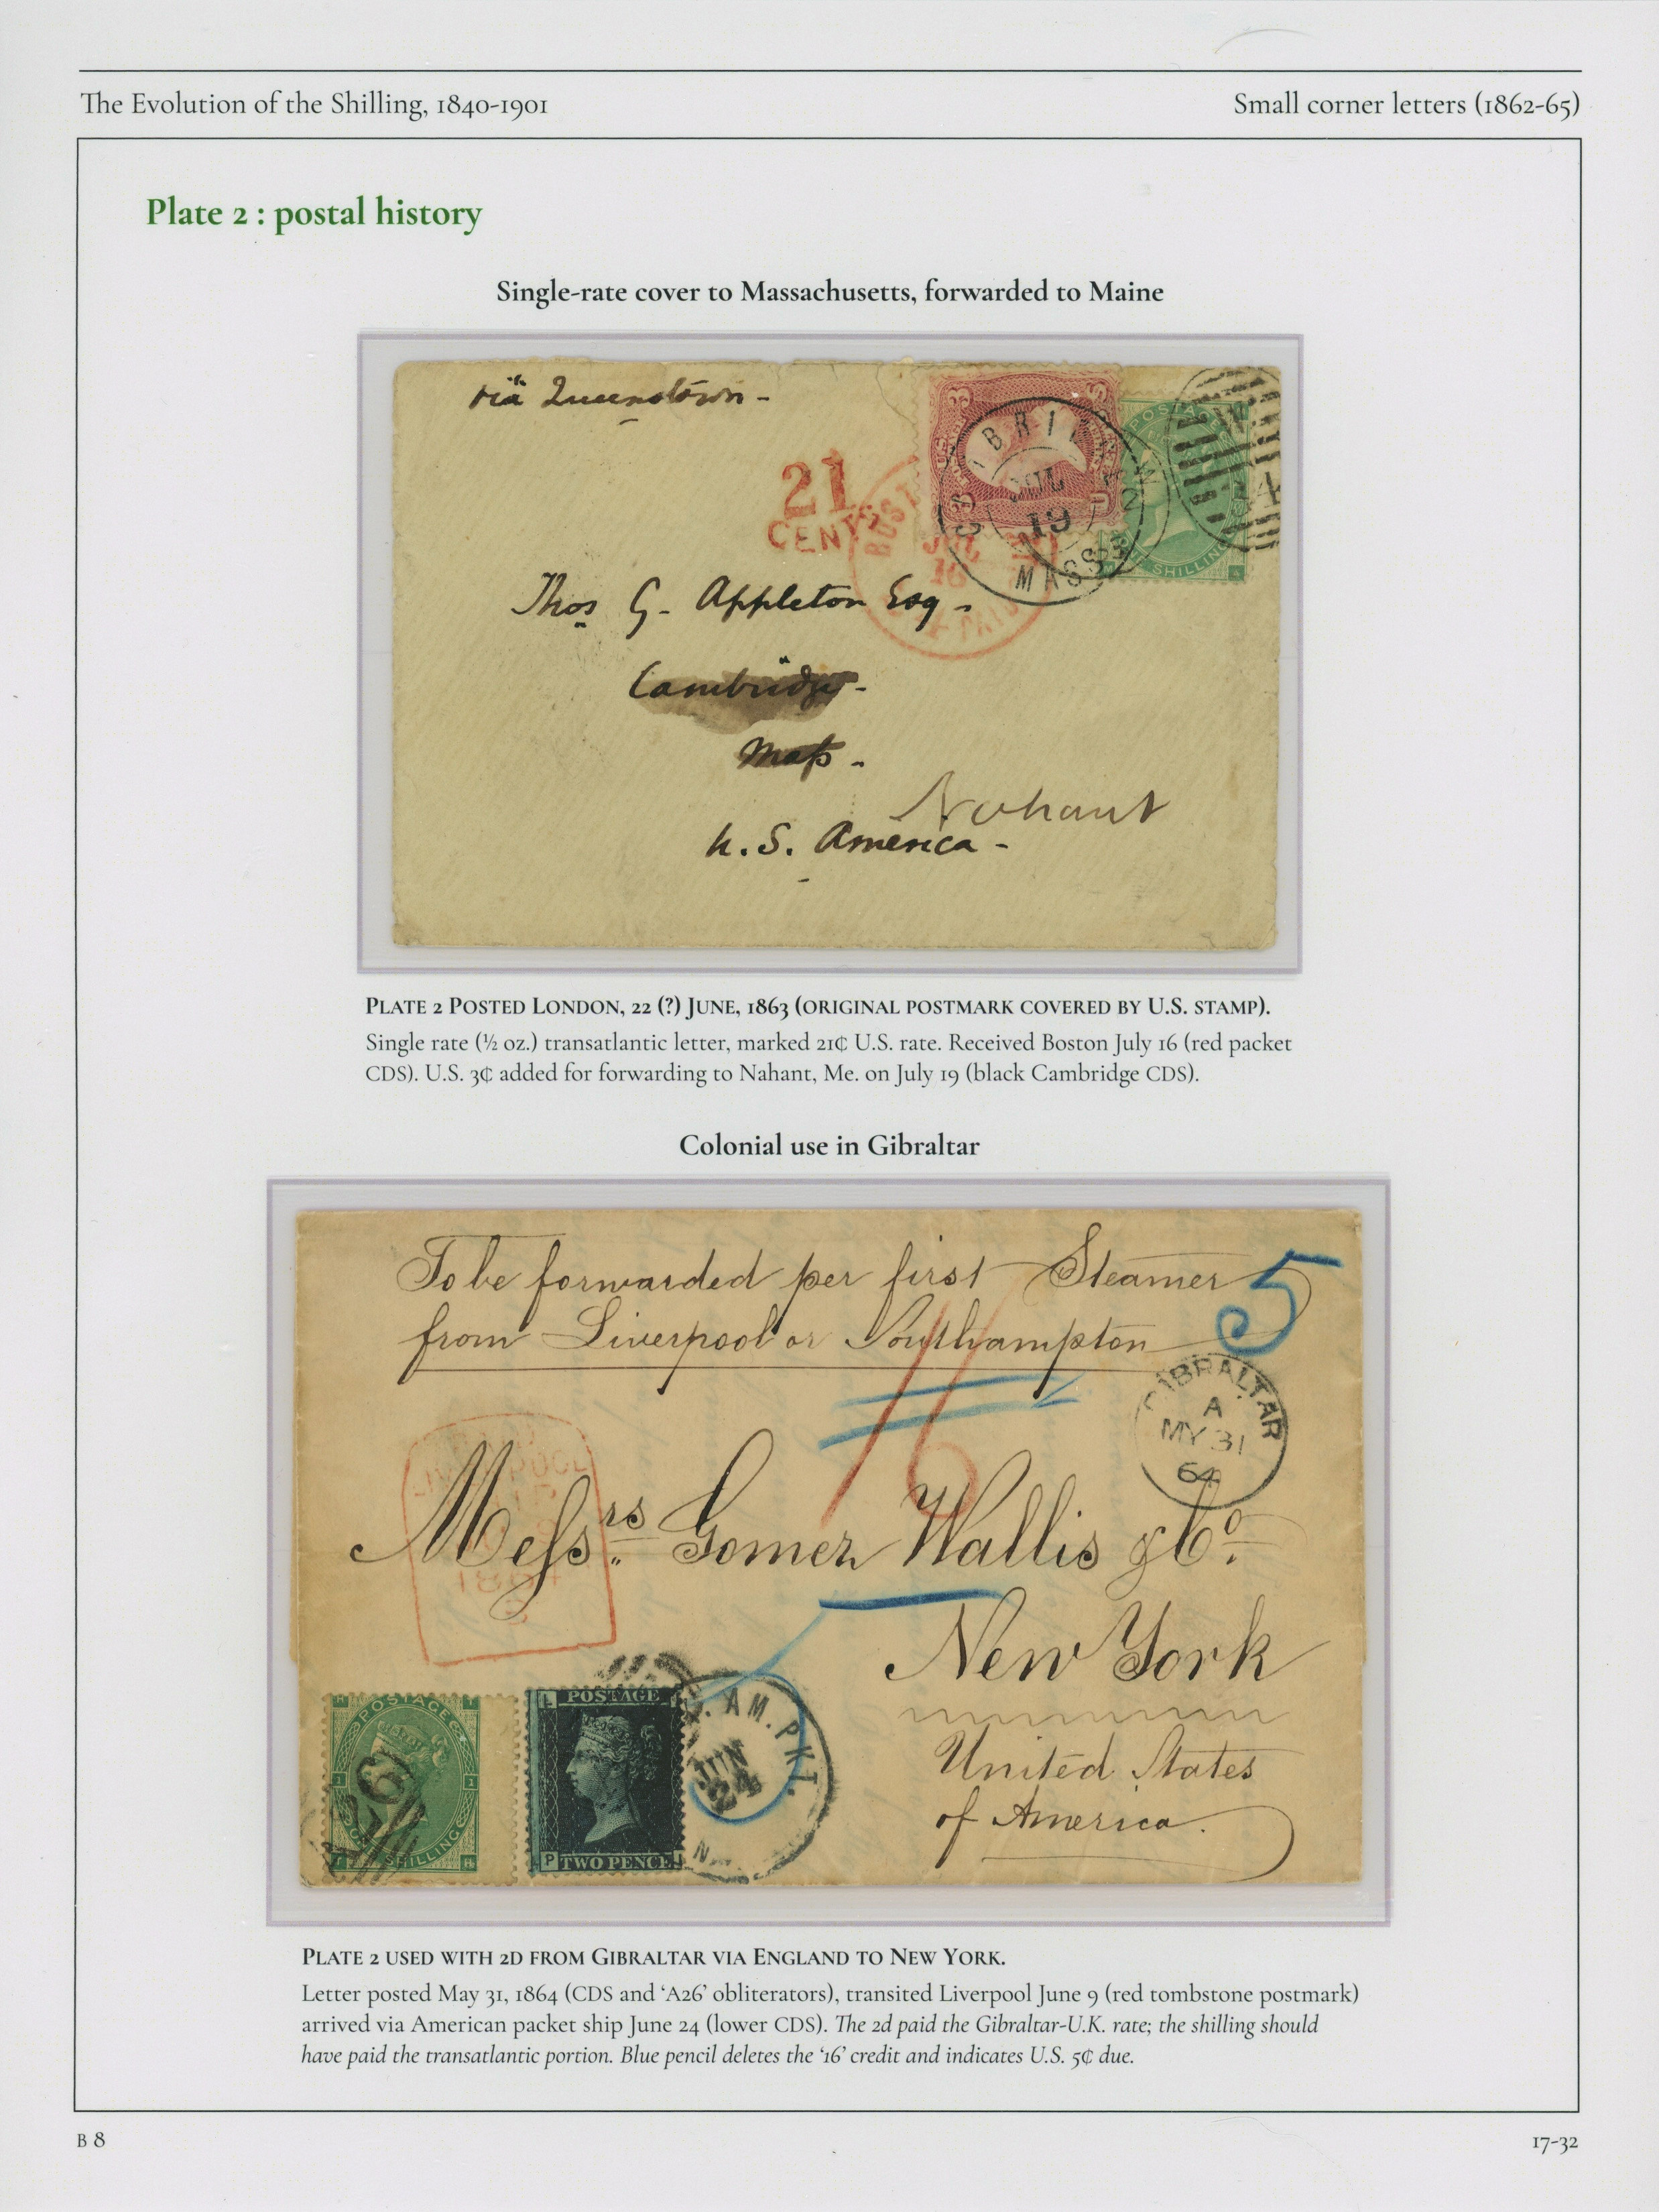 The Evolution of the Shilling, 1840-1901
Small corner letters (1862-65)
Plate 2 : postal history
Single-rate cover to Massachusetts, forwarded to Maine
via Queenstown -
21
CENTS
BOST
JUL
16
PAID
BRI
JUL
19
MASS
POSTAGE
SHILLING
W
4
Thos G. Appleton Esq -
Cambridge -
Mass -
Nahant
U. S. America -
PLATE 2 POSTED LONDON, 22 (?) JUNE, 1863 (ORIGINAL POSTMARK COVERED BY U.S. STAMP).
Single rate (½ oz.) transatlantic letter, marked 21¢ U.S. rate. Received Boston July 16 (red packet
CDS). U.S. 3¢ added for forwarding to Nahant, Me. on July 19 (black Cambridge CDS).
Colonial use in Gibraltar
To be forwarded per first Steamer
from Liverpool or Southampton
5
16
GIBRALTAR
A
MY 31
64
LIVERPOOL
1864
Messrs. Gomer Wallis & Co.
New York
United States
of America.
POSTAGE
26
SHILLING
POSTAGE
TWO PENCE
AM. PKT.
JUN
24
PLATE 2 USED WITH 2D FROM GIBRALTAR VIA ENGLAND TO NEW YORK.
Letter posted May 31, 1864 (CDS and ‘A26’ obliterators), transited Liverpool June 9 (red tombstone postmark)
arrived via American packet ship June 24 (lower CDS). The 2d paid the Gibraltar-U.K. rate; the shilling should
have paid the transatlantic portion. Blue pencil deletes the ‘16’ credit and indicates U.S. 5¢ due.
B 8
17-32